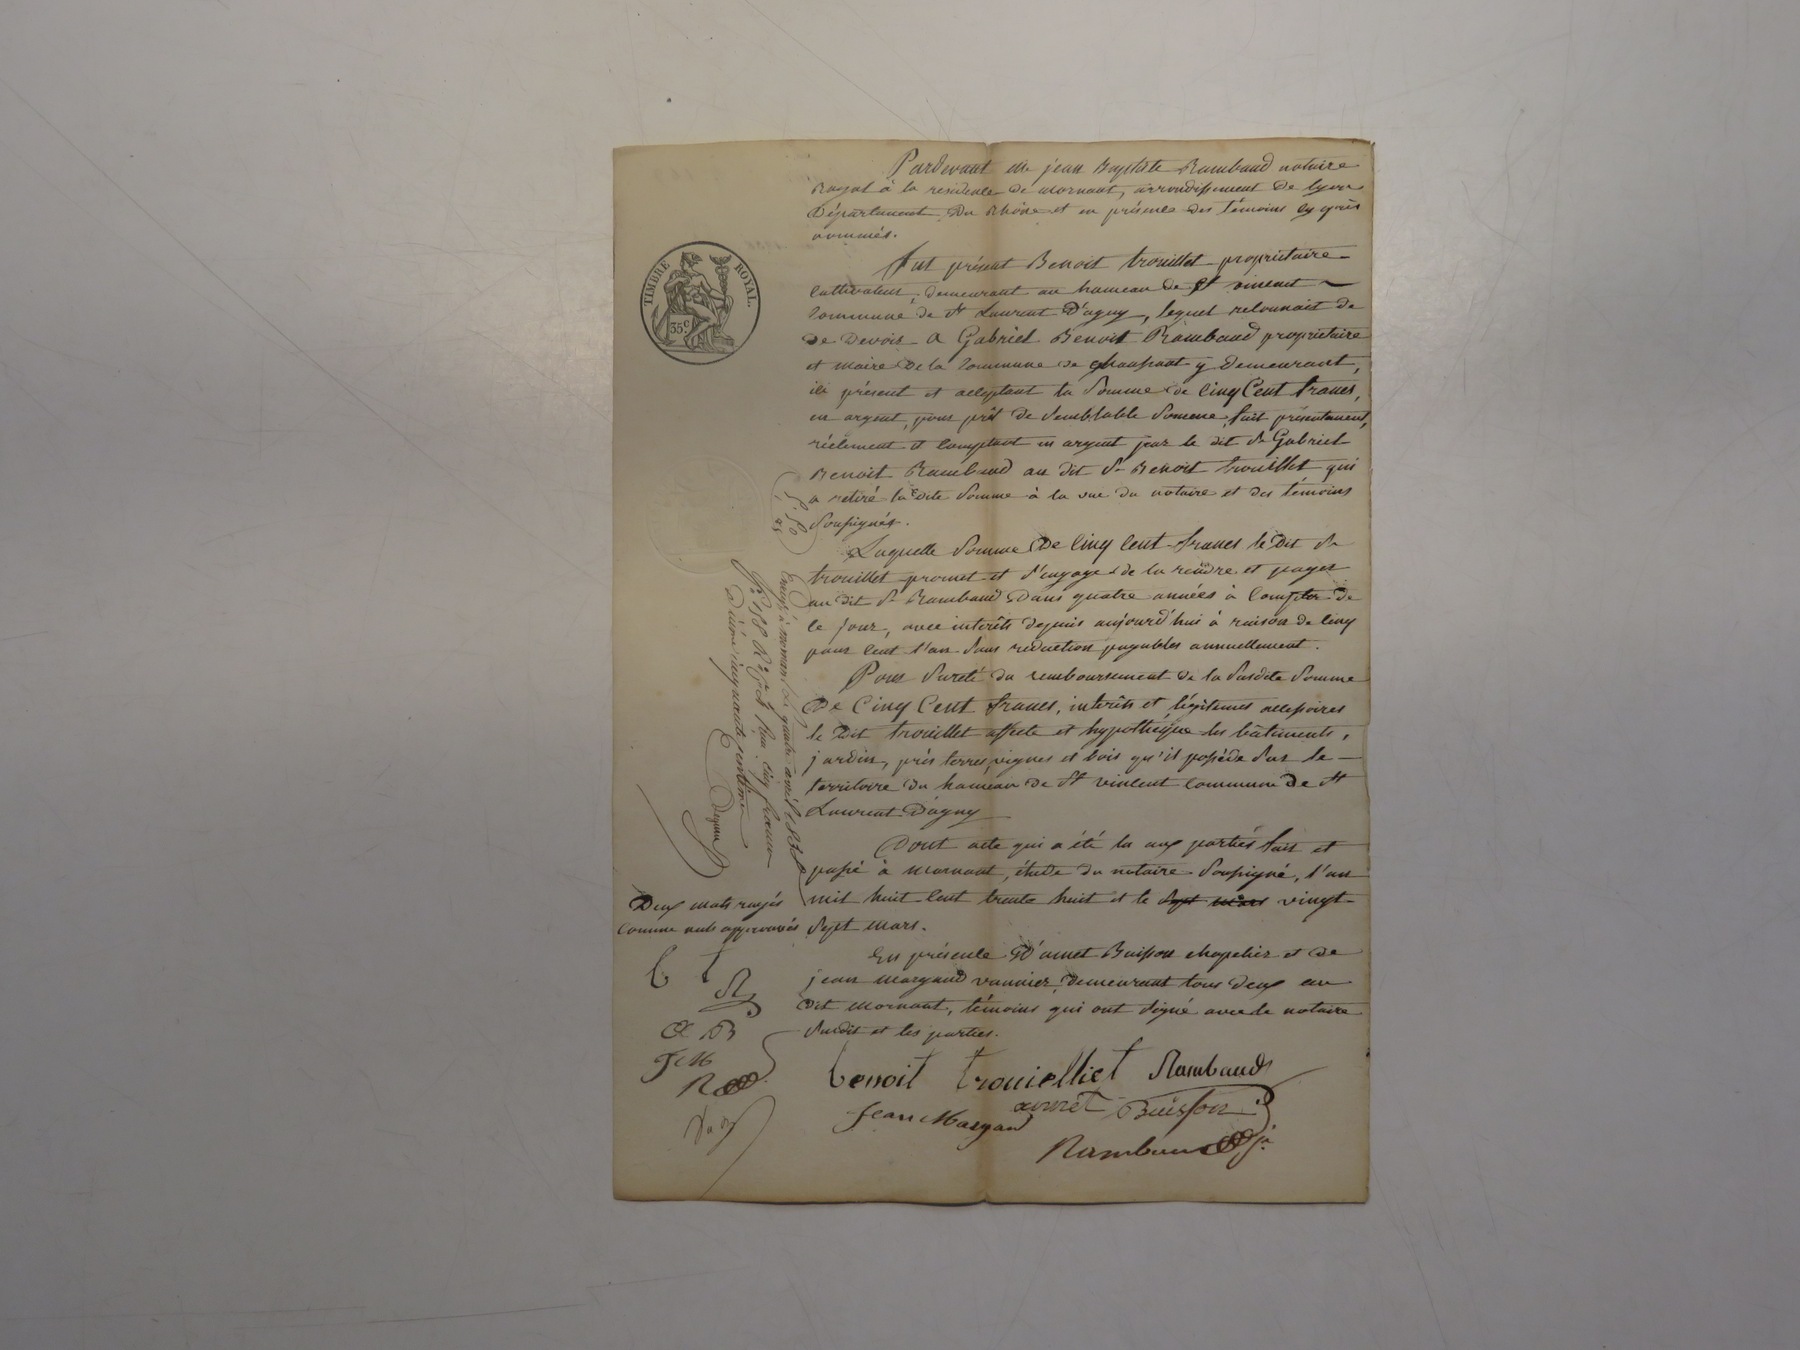 Pardevant Me jean Baptiste Rambaud notaire
Royal à la residence de mornant, arrondissement de lyon
Département Du Rhône et en présence des témoins cy après
nommés.
TIMBRE ROYAL.
35c
Fut présent Benoit trouillet propriétaire
Cultivateur, demeurant au hameau de St vincent
Commune de St Laurent D'agny, lequel reconnait de
de Devoir a Gabriel Benoit Rambaud propriétaire
et maire De la Commune de chaussant y Demeurant,
ici présent et acceptant la Somme de Cinq Cent francs,
en argent, pour prêt de Semblable Somme, fait présentement,
réelement et Comptant en argent par le dit Sr Gabriel
Benoit Rambaud au dit Sr Benoit trouillet qui
a retiré la dite Somme à la vue du notaire et des témoins
Soussignés.
Laquelle Somme De Cinq Cent francs le Dit Sr
trouillet promet et S'engage de la rendre et payer
au dit Sr Rambaud Dans quatre années à Compter De
Ce Jour, avec intérêts depuis aujourd'hui à raison de Cinq
pour Cent l'an Sans reduction payables annuellement.
Pour Sureté du remboursement de la Susdite Somme
De Cinq Cent francs, intérêts et légitimes accessoires
le Dit trouillet affecte et hypothéque les bâtiments,
jardin, près terres, vignes et bois qu'il possède Sur le
territoire du hameau de St vincent Commune De St
Laurent D'agny
Dont acte qui a été lu aux parties fait et
passé à Mornant, étude du notaire Soussigné, l'an
mil huit Cent trente huit et le Sept mars vingt
Sept mars.
En présence D'amet Buisson chapelier et de
jean Margand vannier, Demeurant tous Deux au
Dit Mornant, témoins qui ont Signé avec le notaire
Susdit et les parties.
Benoit trouielliet Rambaud
amet Buisson
Jean Margand
Rambaud jn
Enregé à mornant le quatre avril 1838
fo 188 Ro Reçu cinq francs
Décime cinquante centimes
Deux mots rayés
Comme nuls approuvés
b t
R
a B
J M
R